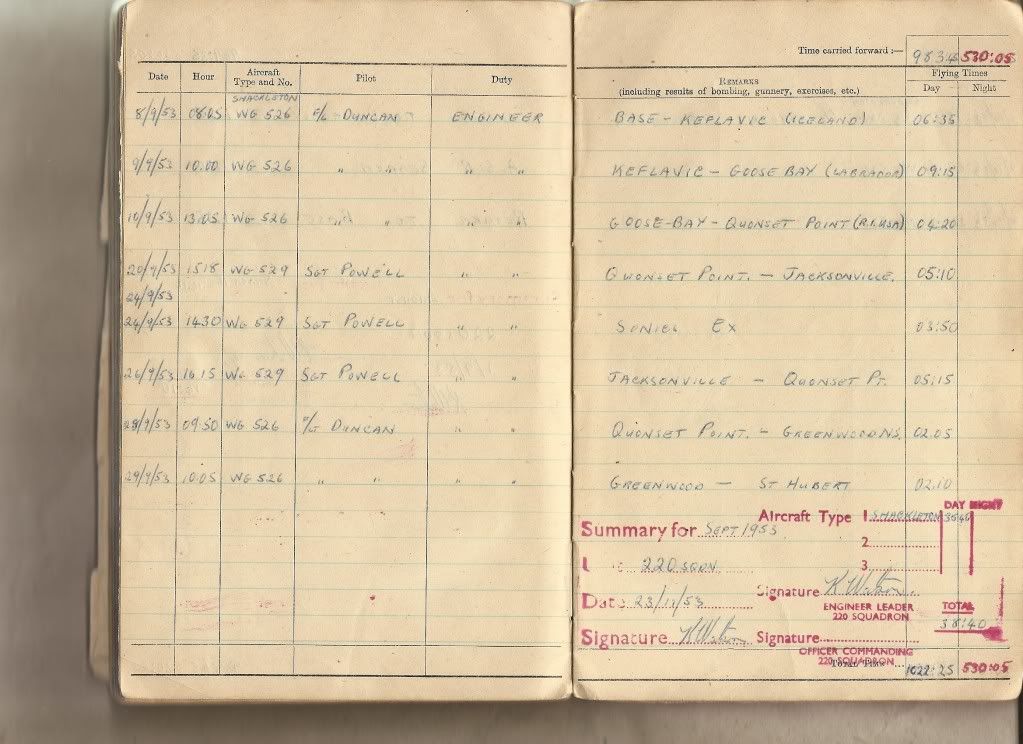 Time carried forward :— 983:45 530:05
Date Hour Aircraft Type and No. Pilot Duty REMARKS (including results of bombing, gunnery, exercises, etc.) Flying Times Day Night
SHACKLETON
8/9/53 08.05 WG 526 F/LT DUNCAN ENGINEER BASE - KEFLAVIC (ICELAND) 06:35
9/9/53 10.00 WG 526 " " " " KEFLAVIC - GOOSE BAY (LABRADOR) 09:15
10/9/53 13.05 WG 526 " " " " GOOSE-BAY - QUONSET POINT (R.I. USA) 04:20
20/9/53 1518 WG 529 SGT POWELL " " QWONSET POINT. - JACKSONVILLE. 05:10
24/9/53
24/9/53 1430 WG 529 SGT POWELL " " EX 03:50
26/9/53 1615 WG 529 SGT POWELL " " JACKSONVILLE - QUONSET PT. 05:15
28/9/53 09.50 WG 526 F/LT DUNCAN " " QUONSET POINT. - GREENWOOD NS. 02.05
29/9/53 10.05 WG 526 " " " " GREENWOOD - ST HUBERT 02.10
DAY NIGHT
Summary for SEPT 1953 Aircraft Type 1 SHACKLETON 38:40
2
220 SQDN 3
Date 23/11/53 Signature K Watson
ENGINEER LEADER 220 SQUADRON TOTAL
38:40
Signature K Watson Signature
OFFICER COMMANDING
220 SQUADRON
TOTAL TIME 1022:25 530:05